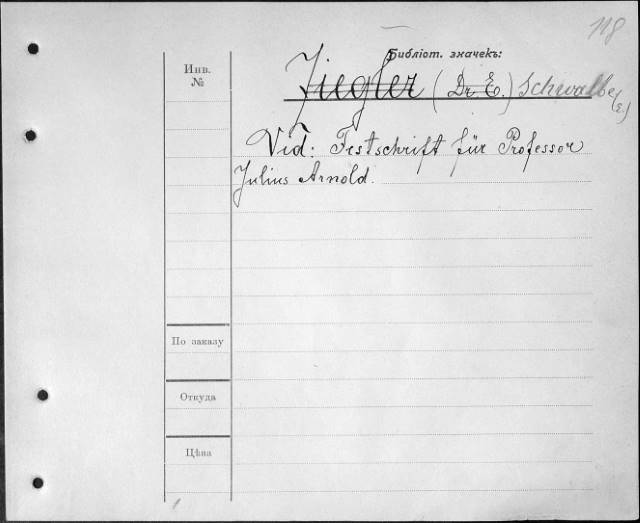 118
Библіот. значекъ:
Инв.
№
Ziegler (Dr E.) Schwalbe
(E.)
Vid: Festschrift für Professor
Julius Arnold.
По заказу
Откуда
Цѣна